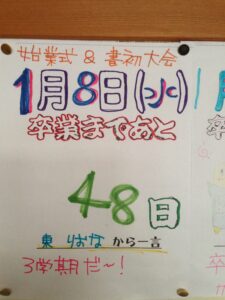 始業式 & 書初大会
1月8日(水)
卒業まであと
48日
東 りおな から一言
3学期だ〜!